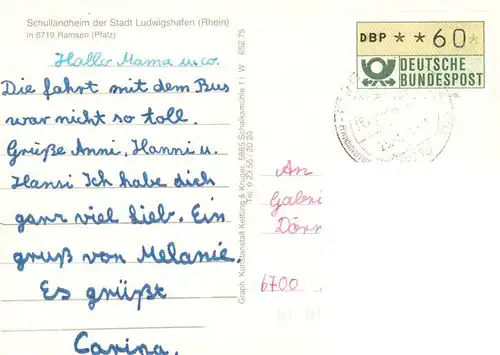 Schullandheim der Stadt Ludwigshafen (Rhein)
in 6719 Ramsen (Pfalz)
Hallo Mama u.co.
Die fahrt mit dem Bus
war nicht so toll.
Grüße Anni, Hanni u.
Hansi Ich habe dich
ganz viel lieb. Ein
gruß von Melanie.
Es grüßt
Carina.
Graph. Kunstanstalt Kettling & Krüger, 5885 Schalksmühle 1 W 652 75
Tel. 0 23 55 / 20 20
DBP **60*
DEUTSCHE
BUNDESPOST
An
Gabri
Dörr
6700